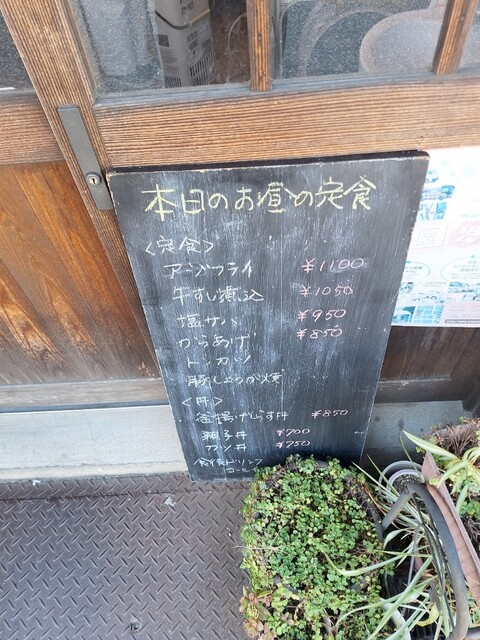 本日のお昼の定食
<定食>
アジフライ ¥1100
牛すじ煮込 ¥1050
塩サバ ¥950
からあげ ¥850
トンカツ
豚しょうが焼
<丼>
釜揚げしらす丼 ¥850
親子丼 ¥700
カツ丼 ¥750
食後ドリンク